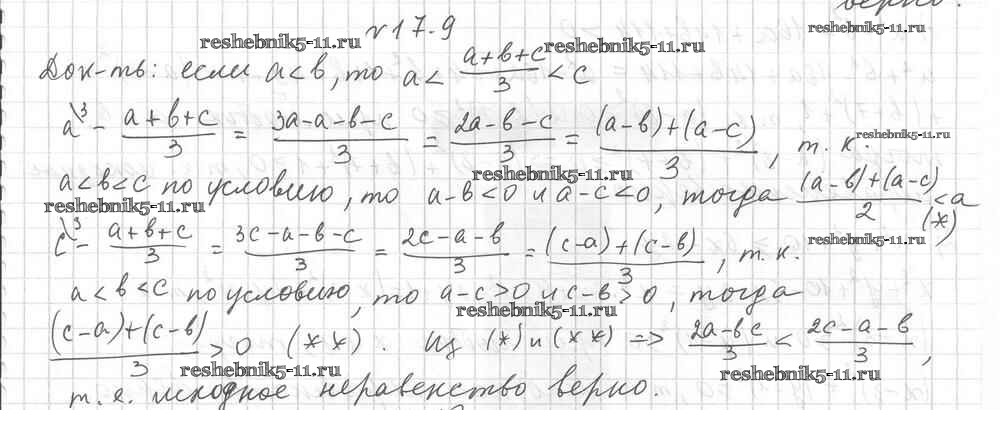 верно.
№ 17.9
reshebnik5-11.ru reshebnik5-11.ru reshebnik5-11.ru
Док-ть: если a<b, то a < (a+b+c)/3 < c
a\³ - (a+b+c)/3 = (3a-a-b-c)/3 = (2a-b-c)/3 = ((a-b)+(a-c))/3, т.к.
reshebnik5-11.ru reshebnik5-11.ru
a<b<c по условию, то a-b<0 и a-c<0, тогда ((a-b)+(a-c))/2 <a (*)
reshebnik5-11.ru
c\³ - (a+b+c)/3 = (3c-a-b-c)/3 = (2c-a-b)/3 = ((c-a)+(c-b))/3, т.к.
reshebnik5-11.ru
a<b<c по условию, то a-c>0 и c-b>0, тогда
reshebnik5-11.ru
((c-a)+(c-b))/3 >0 (**). Из (*) и (**) => (2a-bc)/3 < (2c-a-b)/3,
reshebnik5-11.ru reshebnik5-11.ru
т.е. исходное неравенство верно.